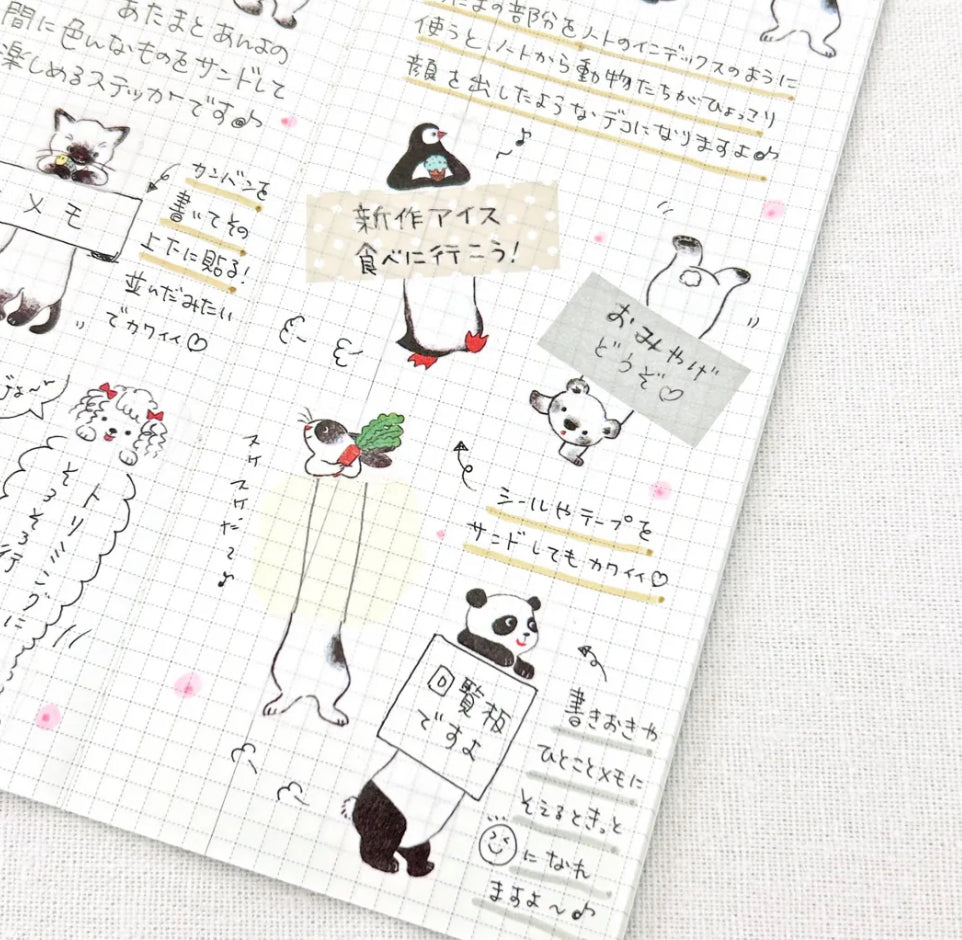 あたまとあんよの
間に色んなものをサンドして
楽しめるステッカーです♪
たまの部分をノートのインデックスのように
使うと、ノートから動物たちがひょっこり
顔を出したようなデコになりますよ♪
メモ
カンバンを
書いてその
上下に貼る!
並んだみたい
でカワイイ♡
新作アイス
食べに行こう!
おみやげ
どうぞ♡
トリミングに
そろそろ行
スケスケだ〜♪
シールやテープを
サンドしてもカワイイ♡
回覧板
ですよ
書きおきや
ひとことメモに
そえるときっと
になれ
ますよ〜♪